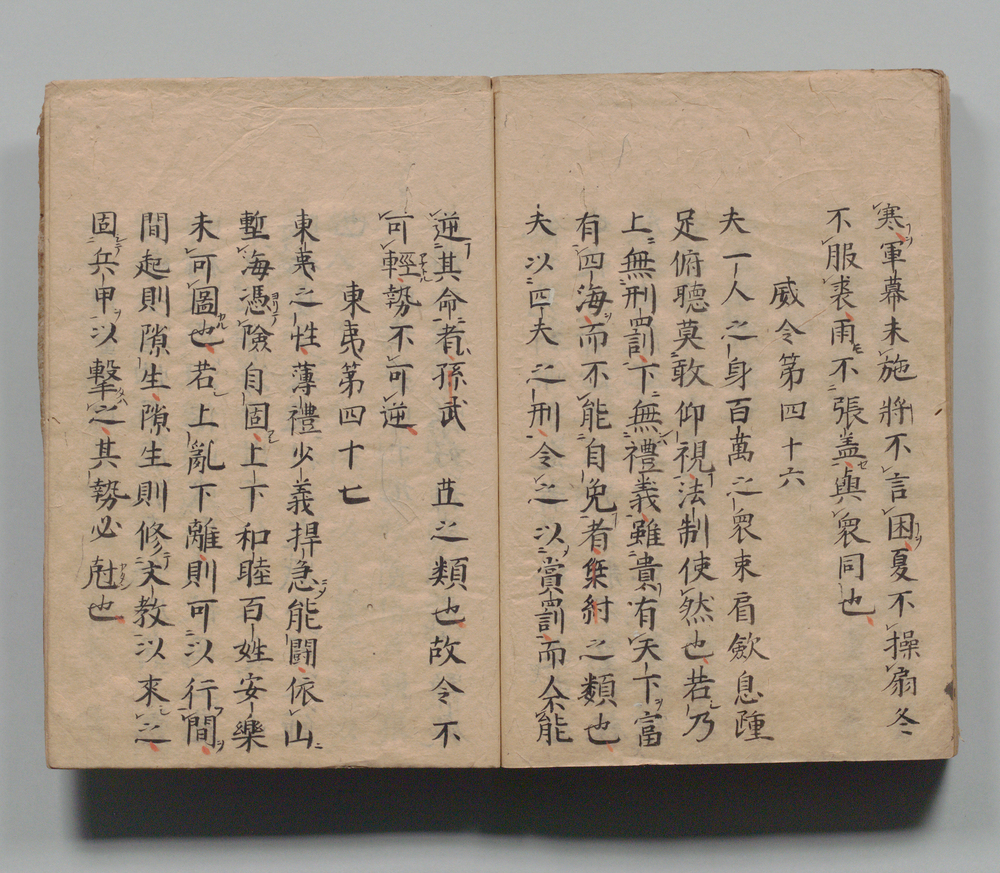 寒軍幕未施將不言困夏不操扇冬
不服裘雨不張盖與衆同也
威令第四十六
夫一人之身百萬之衆束肩歛息踵
足俯聽莫敢仰視法制使然也若乃
上無刑罰下無禮義雖貴有天下富
有四海而不能自免者桀紂之類也
夫以四夫之刑令之以賞罰而人不能
逆其命者孫武苴之類也故令不
可輕勢不可逆
東夷第四十七
東夷之性薄禮少義捍急能闘依山
塹海憑險自固上下和睦百姓安樂
未可圖也若上亂下離則可以行間
間起則隙生隙生則修文教以來之
固兵甲以撃之其勢必尅也